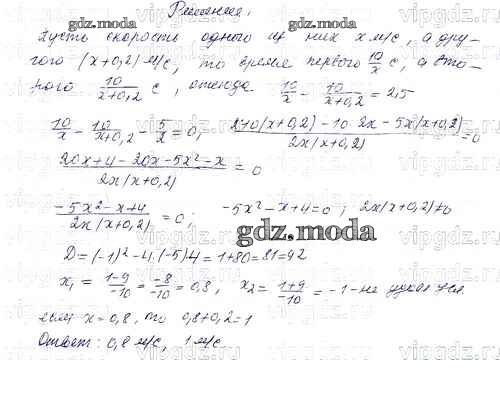 Решение.
Пусть скорость одного из них x м/с, а дру-
гого (x+0,2) м/с, то время первого 10/x с, а вто-
рого 10/(x+0,2) с, отсюда 10/x - 10/(x+0,2) = 2,5
10/x - 10/(x+0,2) - 5/2 = 0; (2·10(x+0,2)-10·2x-5x(x+0,2))/(2x(x+0,2)) = 0
(20x+4-20x-5x²-x)/(2x(x+0,2)) = 0
(-5x²-x+4)/(2x(x+0,2)) = 0; -5x²-x+4=0; 2x(x+0,2)≠0
gdz.moda
D=(-1)²-4·(-5)4=1+80=81=9²
x₁ = (1-9)/-10 = -8/-10 = 0,8, x₂ = (1+9)/-10 = -1 -не
если x=0,8, то 0,8+0,2=1
Ответ: 0,8 м/с, 1 м/с